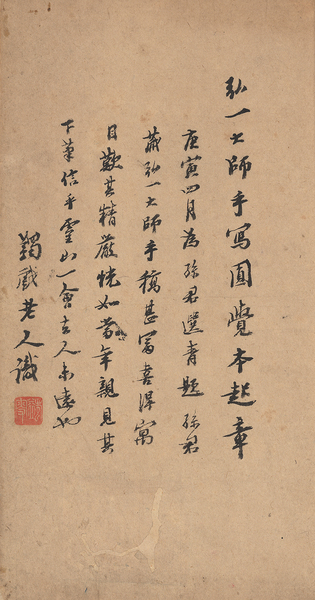 弘一大師手寫圓覺本起章
庚寅四月為孫君選青題孫君
藏弘一大師手稿甚富喜得寓
目歎其精嚴恍如當年親見其
下筆信乎靈山一會古人未遠也
蠲戲老人識